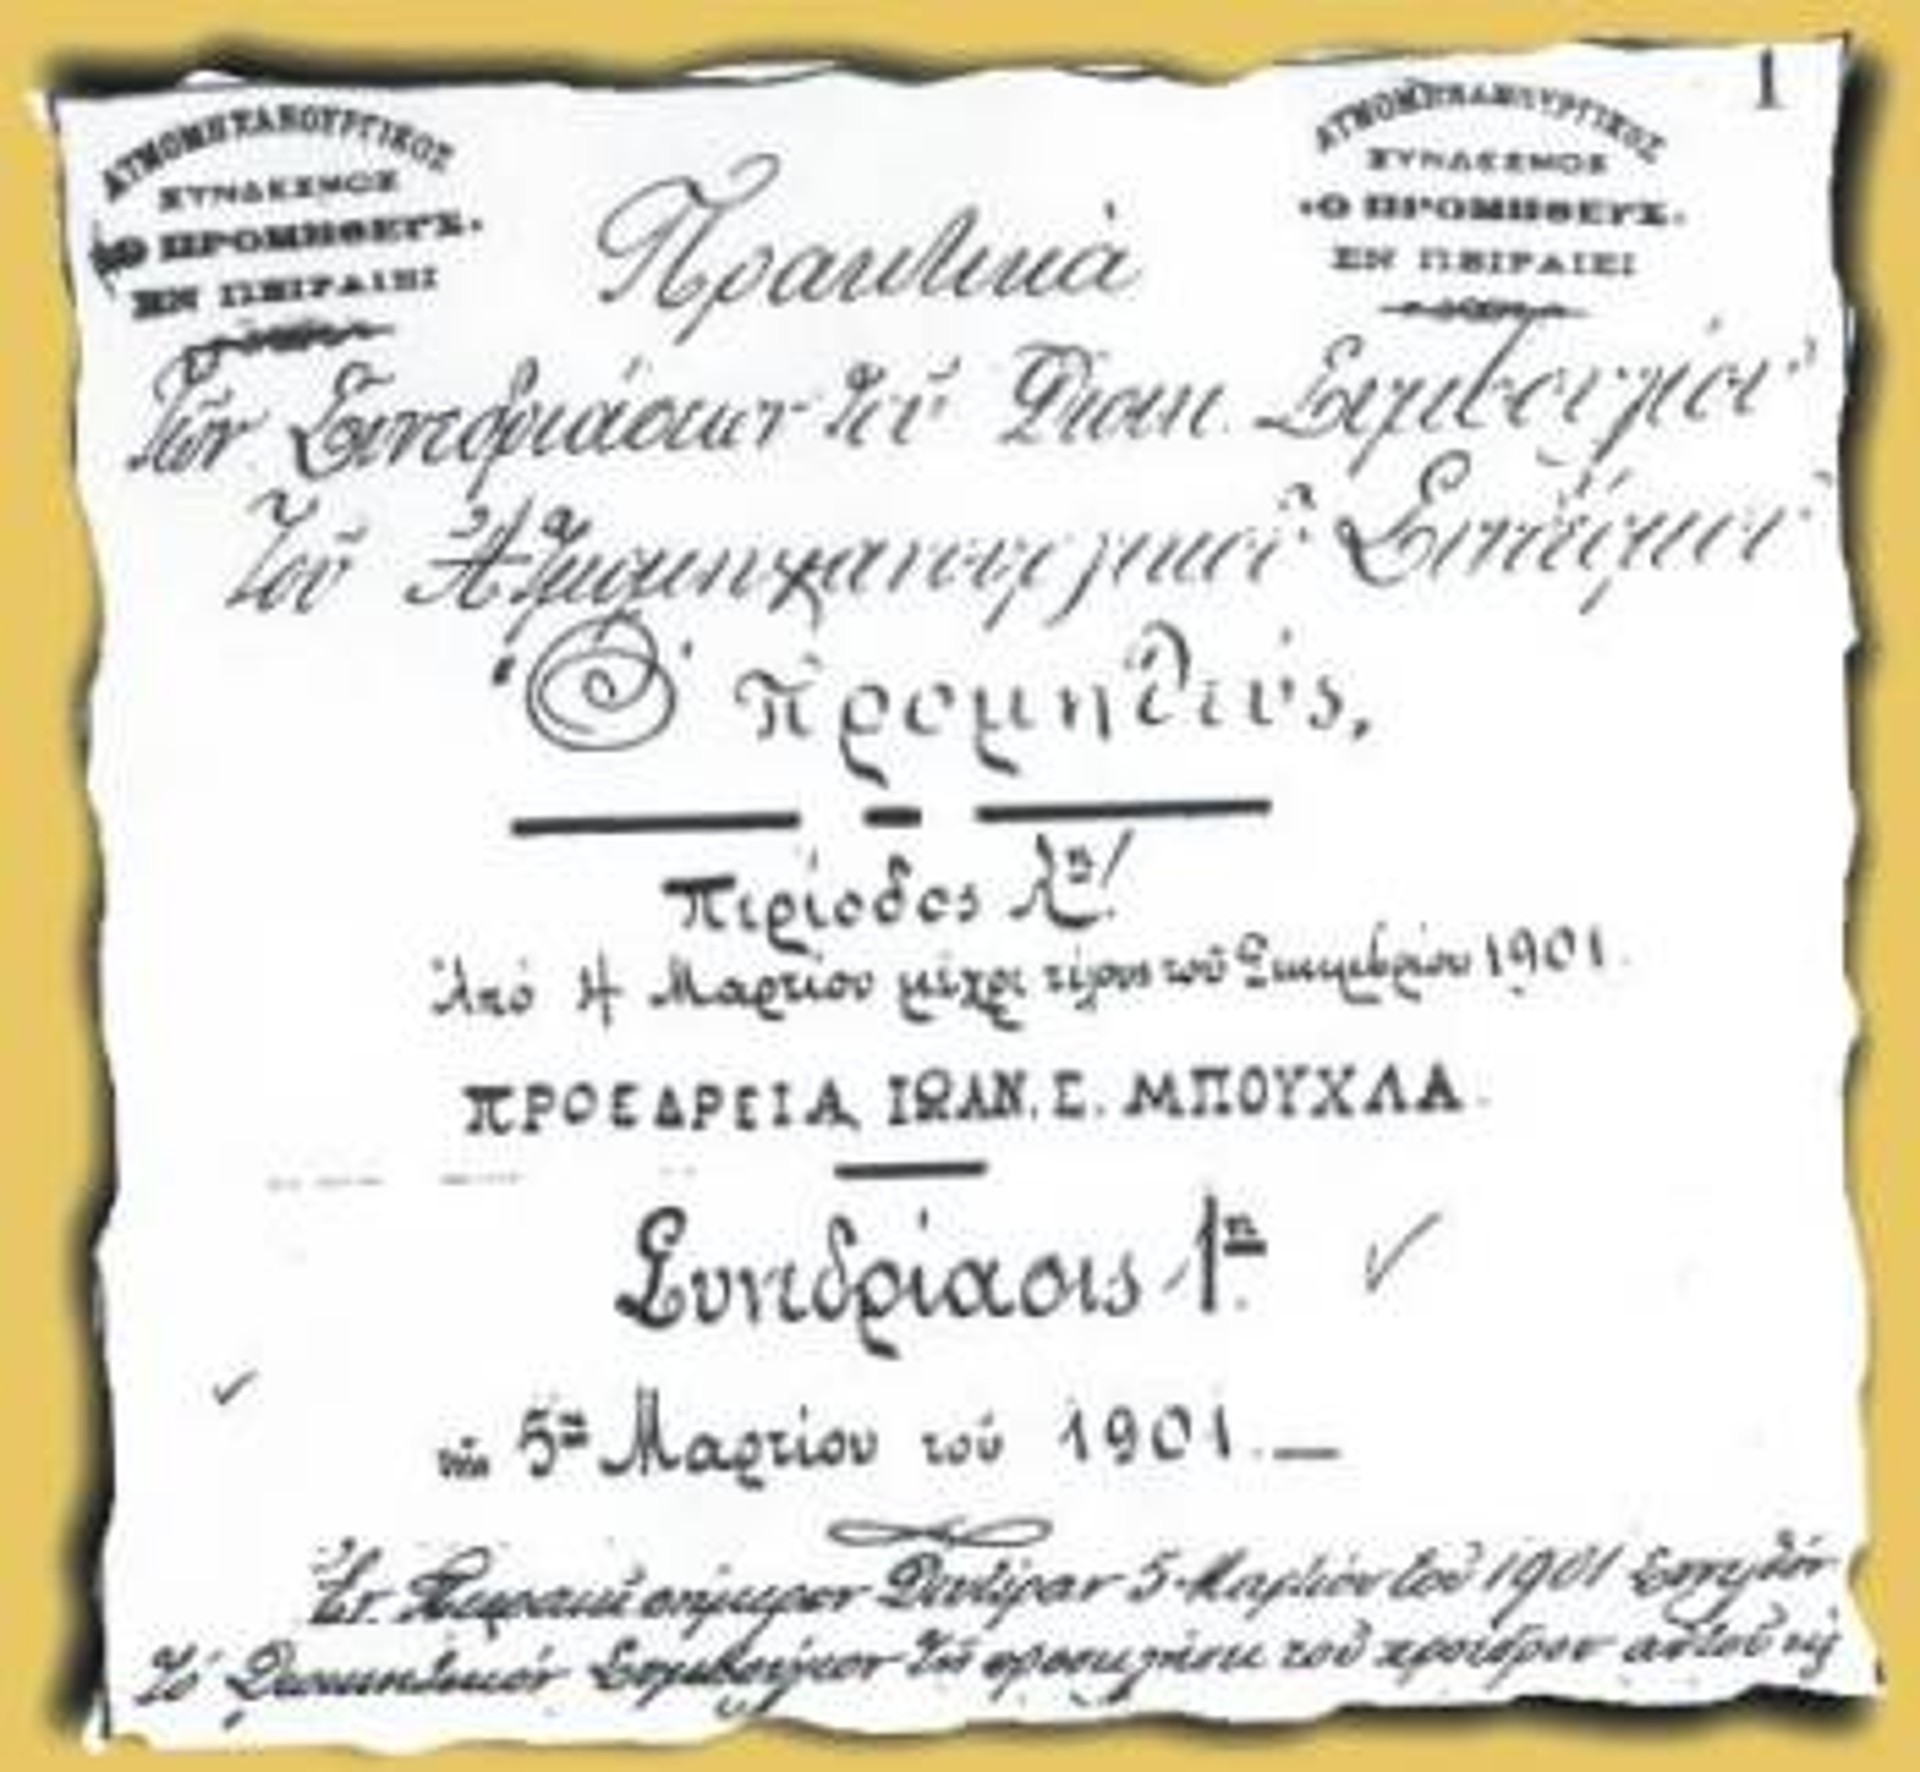 1
ΑΤΜΟΜΗΧΑΝΟΥΡΓΙΚΟΣ
ΣΥΝΔΕΣΜΟΣ
«Ο ΠΡΟΜΗΘΕΥΣ»
ΕΝ ΠΕΙΡΑΙΕΙ
ΑΤΜΟΜΗΧΑΝΟΥΡΓΙΚΟΣ
ΣΥΝΔΕΣΜΟΣ
«Ο ΠΡΟΜΗΘΕΥΣ»
ΕΝ ΠΕΙΡΑΙΕΙ
Πρακτικά
Τῶν Συνεδριάσεων τοῦ Διοικ. Συμβουλίου
τοῦ Ἀτμομηχανουργικοῦ Συνδέσμου
"Ὁ Προμηθεύς,
Περίοδος
Ἀπό 4 Μαρτίου μέχρι τέλους τοῦ Δεκεμβρίου 1901.
ΠΡΟΕΔΡΕΙΑ ΙΩΑΝ. Σ. ΜΠΟΥΧΛΑ.
Συνεδρίασις 1η.
τῆς 5ης Μαρτίου τοῦ 1901.—
Ἐν Πειραιεῖ σήμερον Δευτέραν 5 Μαρτίου τοῦ 1901 συνῆλθεν
τό Διοικητικόν Συμβούλιον τῇ προσκλήσει τοῦ προέδρου αὐτοῦ εἰς